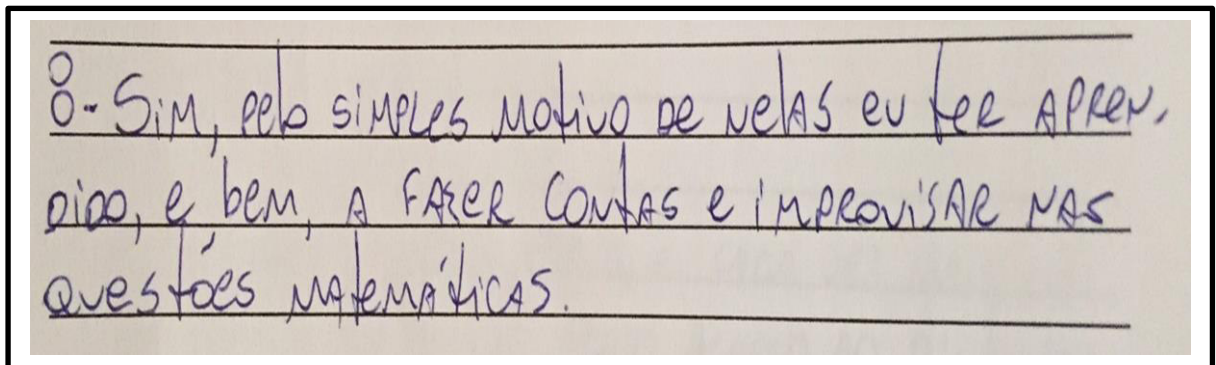 8- Sim, pelo simples motivo de nelas eu ter apren-
dido, e bem, a fazer contas e improvisar nas
questões matemáticas.